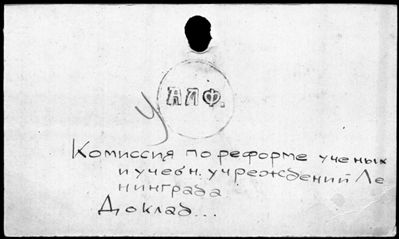 ААФ.
У
Комиссия по реформе ученых
и учебн. учреждений Ле
нинграда
Доклад...